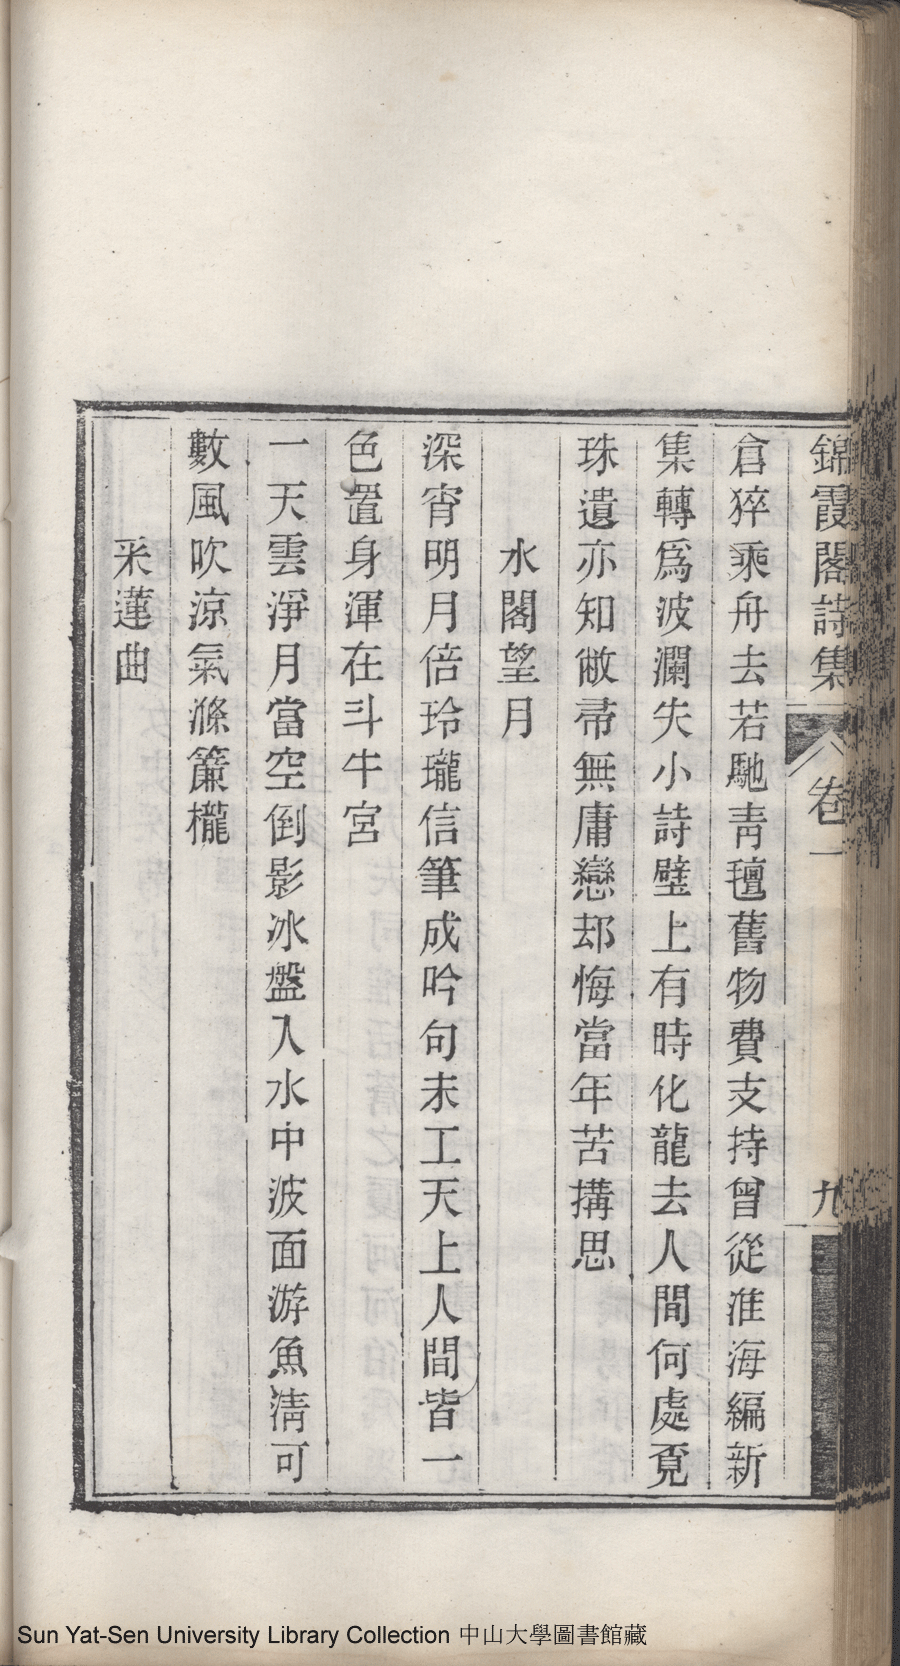 錦霞閣詩集 卷一 九
倉猝乘舟去若馳靑氊舊物費支持曾從淮海編新
集轉爲波瀾失小詩壁上有時化龍去人間何處覔
珠遺亦知敝帚無庸戀却悔當年苦搆思
水閣望月
深宵明月倍玲瓏信筆成吟句未工天上人間皆一
色置身渾在斗牛宮
一天雲淨月當空倒影冰盤入水中波面游魚淸可
數風吹涼氣滌簾櫳
采蓮曲
Sun Yat-Sen University Library Collection 中山大學圖書館藏